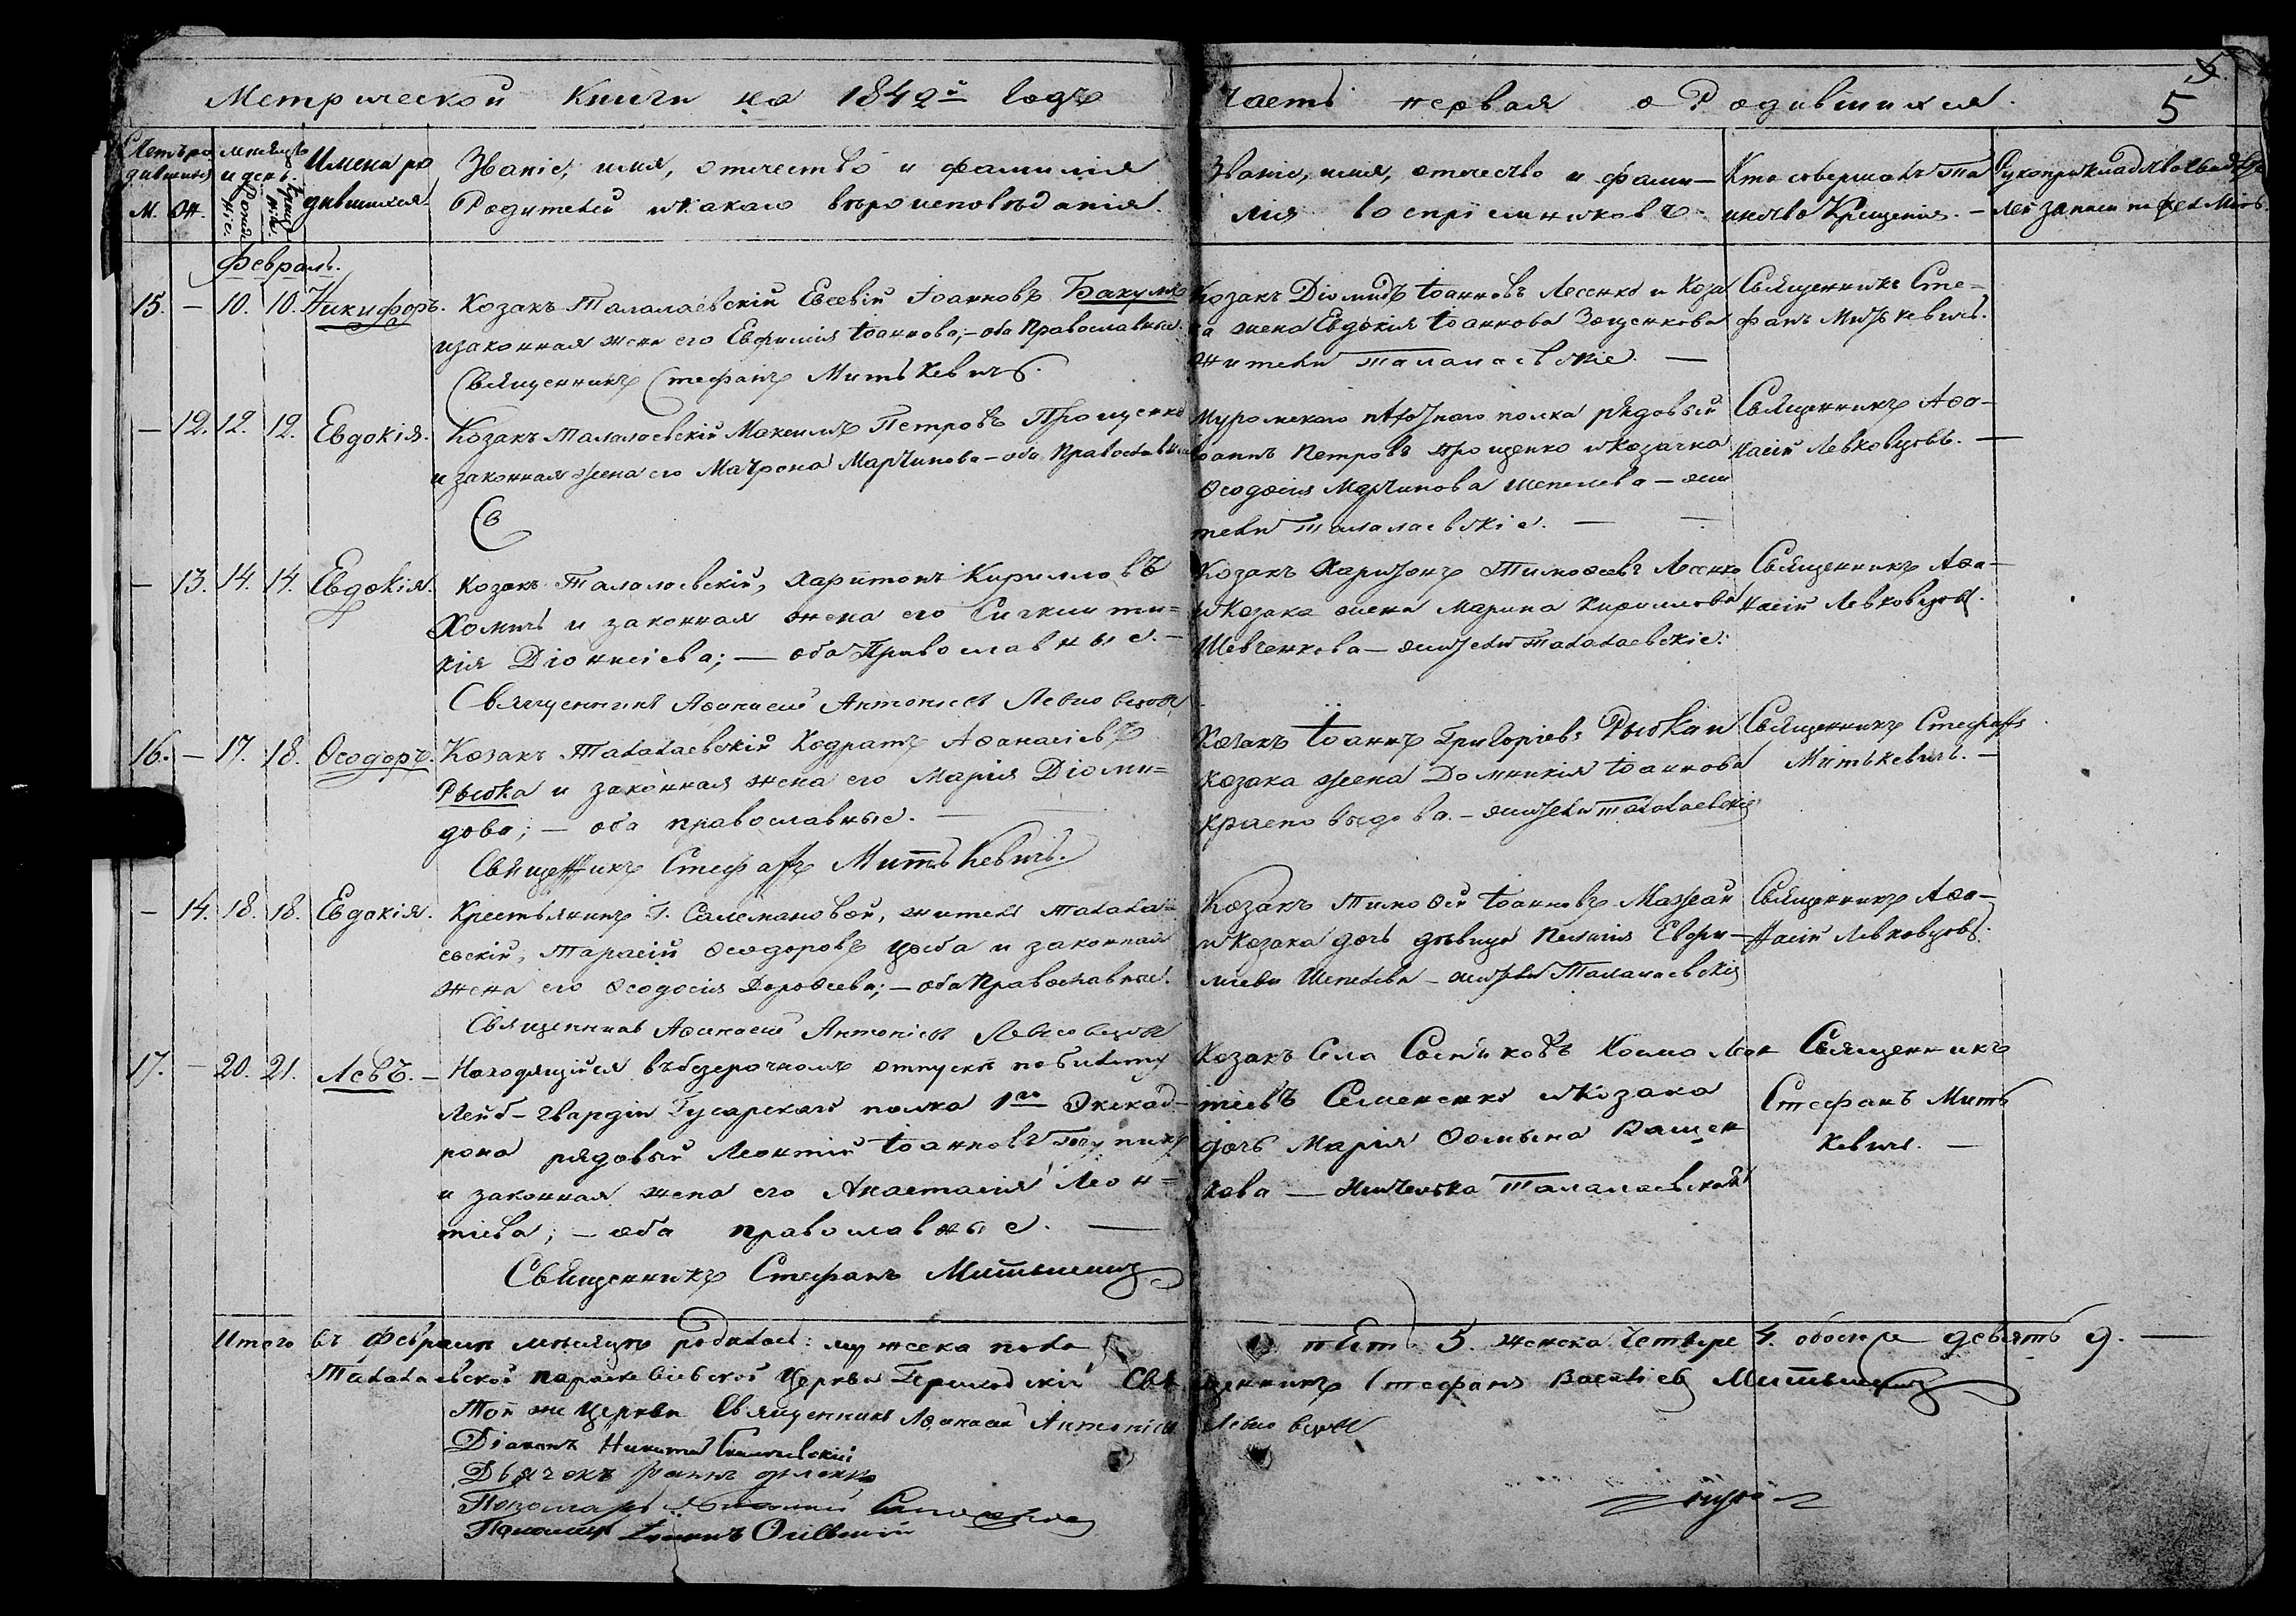 Метрической Книги на 1842й годъ
Часть первая о Родившихся.
5
5
Счетъ ро
дившихся
М. Ж.
мѣсяцъ
и день.
Рожденіе.
Крещеніе.
Имена ро
дившихся.
Званіе, имя, отчество и фамилія
Родителей и какаго вѣроисповѣданія.
Званіе, имя, отчество и фами-
лія воспріемниковъ.
Кто совершалъ Та
инство Крещенія.
Рукоприкладство свидѣте
лей записи по желанію.
Февраль.
15. — 10. 10. Никифоръ.
Козакъ Талалаевскій Евсевій Іоанновъ Бакумъ
и законная жена его Евфимія Іоаннова; — оба Православные.
Священникъ Стефанъ Митькевичъ.
Козакъ Діомидъ Іоанновъ Лесенко и Коза
ка жена Евдокія Іоаннова
жители Талалаевскіе. —
Священникъ Сте-
фанъ Митькевичъ.
— 12. 12. 12. Евдокія.
Козакъ Талалаевскій Максимъ Петровъ Прощенко
и законная жена его Матрона Мартинова — оба Православные
Св
Муромскаго пѣхотнаго полка рядовый
Іоаннъ Петровъ Прощенко и Козачка
Ѳеодосія Мартинова Шепелева — жи
тели Талалаевскіе. —
Священникъ Аѳа-
насій Левковцовъ. —
— 13. 14. 14. Евдокія.
Козакъ Талалаевскій, Харитонъ Кирилловъ
Хомичъ и законная жена его Сигкити-
кія Діонисіева; — оба Православные. —
Священникъ Аѳанасій Антоніевъ Левковцовъ
Козакъ Харитонъ Тимоѳеевъ Лесенко
и Козака жена Марина Кириллова
Шевченкова — жители Талалаевскіе.
Священникъ Аѳа-
насій Левковцовъ.
16. — 17. 18. Ѳеодоръ.
Козакъ Талалаевскій Кодратъ Аѳанасіевъ
Рыбка и законная жена его Марія Діоми-
дова; — оба православные. —
Священникъ Стефанъ Митькевичъ.
Козакъ Іоаннъ Григоріевъ Рыбка и
Козака жена Домникія Іоаннова
— жители Талалаевскіе
Священникъ Стефанъ
Митькевичъ. —
— 14. 18. 18. Евдокія.
Крестьянинъ Г. Салемановой, житель Талала-
евскій, Тарасій Ѳеодоровъ Цыба и законная
жена его Ѳеодосія Дороѳеева; — оба Православные.
Священникъ Аѳанасій Антоніевъ Левковцовъ
Козакъ Тимоѳей Іоанновъ
и Козака дочь дѣвица Пелагія Евфи-
міева Шепелева — жители Талалаевскіе
Священникъ Аѳа-
насій Левковцовъ.
17. — 20. 21. Левъ. —
Находящійся въ безсрочномъ отпуску по билету
Лейб-Гвардіи Гусарскаго полка 1го Эскад-
рона рядовый Леонтій Іоанновъ
и законная жена его Анастасія Леон-
тіева; — оба православные. —
Священникъ Стефанъ Митькевичъ
Козакъ Села Косма Леон
тіевъ Семененко и Козака
дочь Марія Ѳомына Ващен
кова — жителька Талалаевская
Священникъ
Стефанъ Мить
кевичъ. —
Итого въ Февралѣ мѣсяцѣ родилось: мужеска пола пять 5. женска четыре 4. обоего девять 9. —
Талалаевской Параскевіевской Церкви Приходскій Священникъ Стефанъ Василіевъ Митькевичъ
Той же Церкви Священникъ Аѳанасій Антоніевъ Левковцовъ
Діаконъ Никита
Дьячекъ
Пономарь
Пономарь Іоаннъ